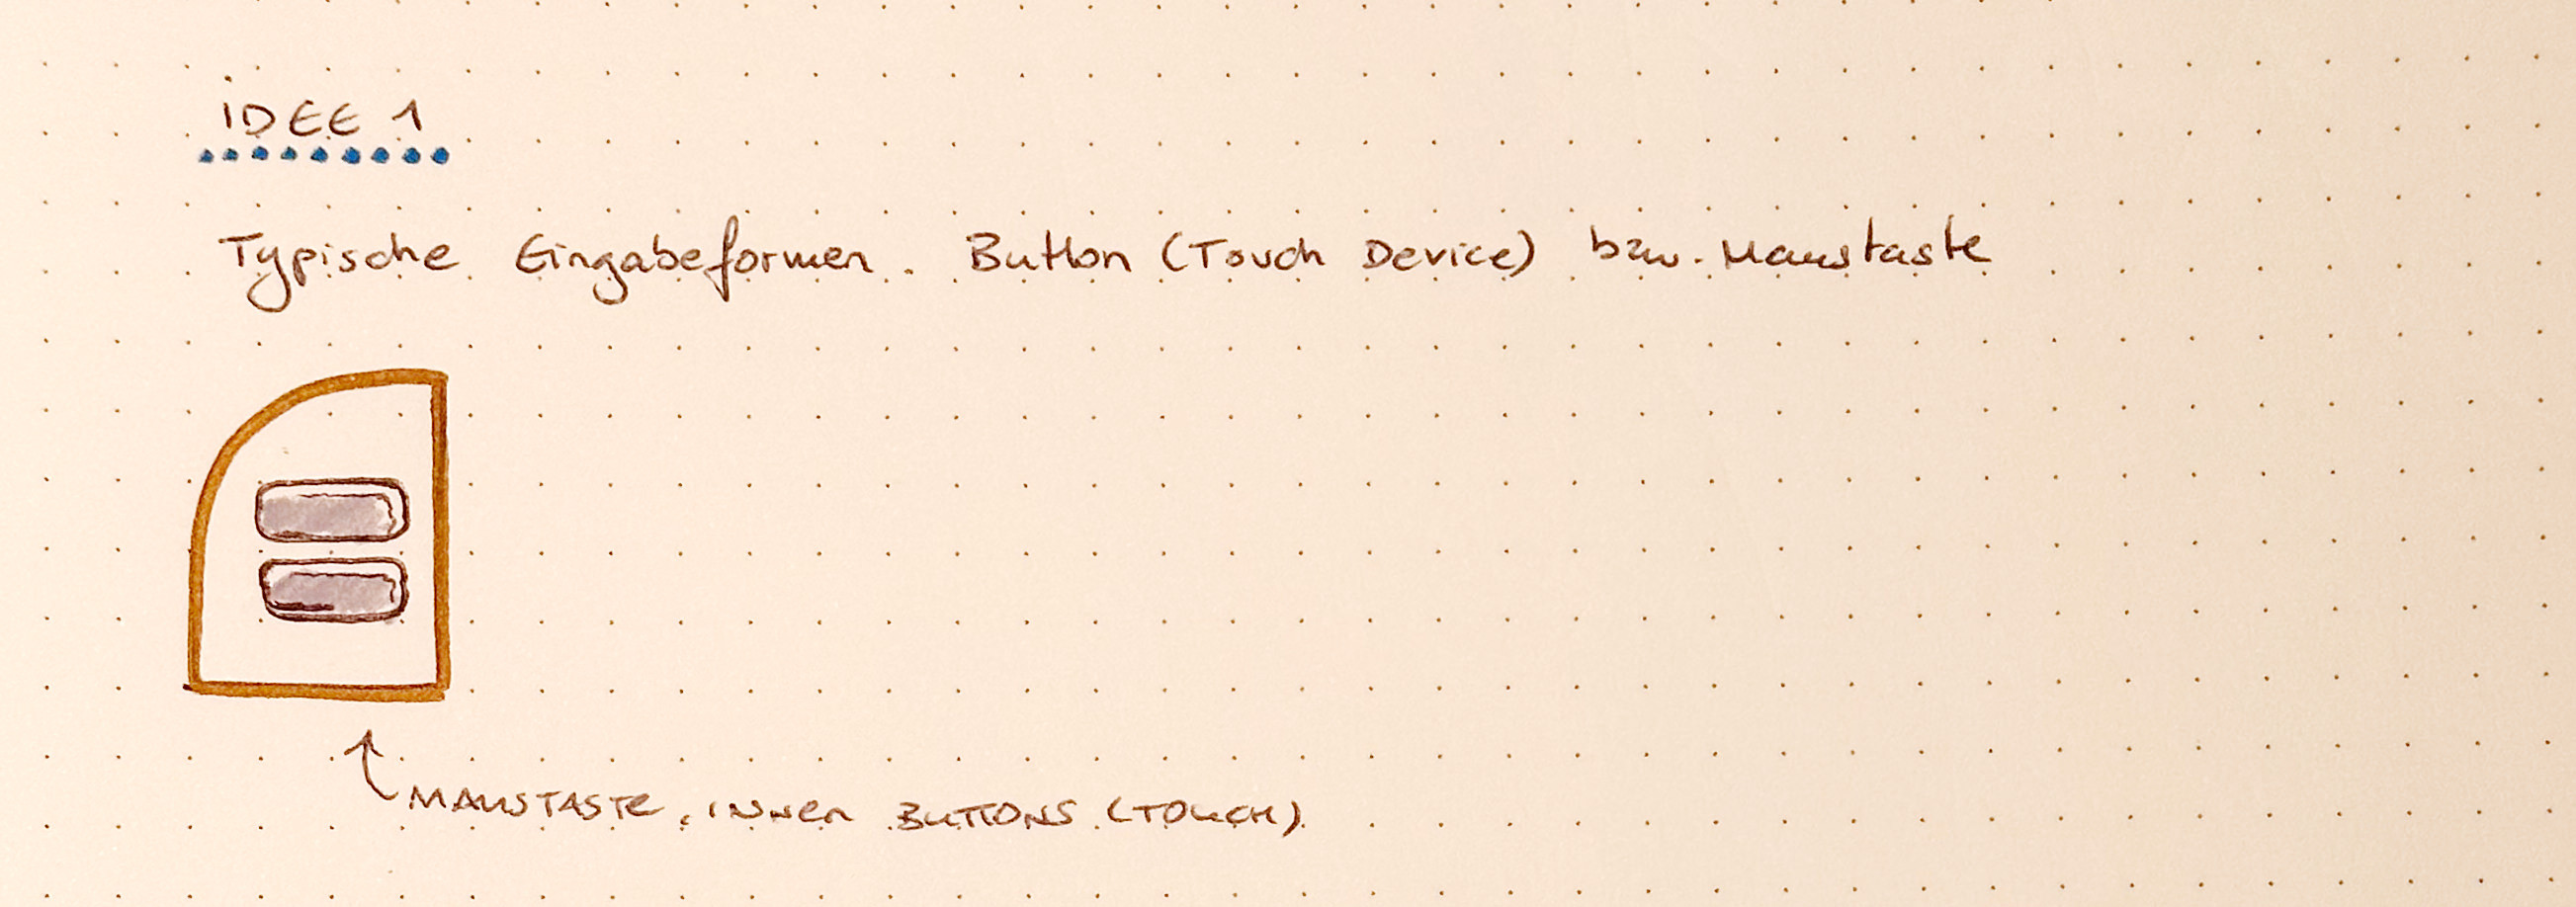 IDEE 1
Typische Eingabeformen. Button (Touch Device) bzw. Maustaste
MAUSTASTE, INNEN BUTTONS (TOUCH)